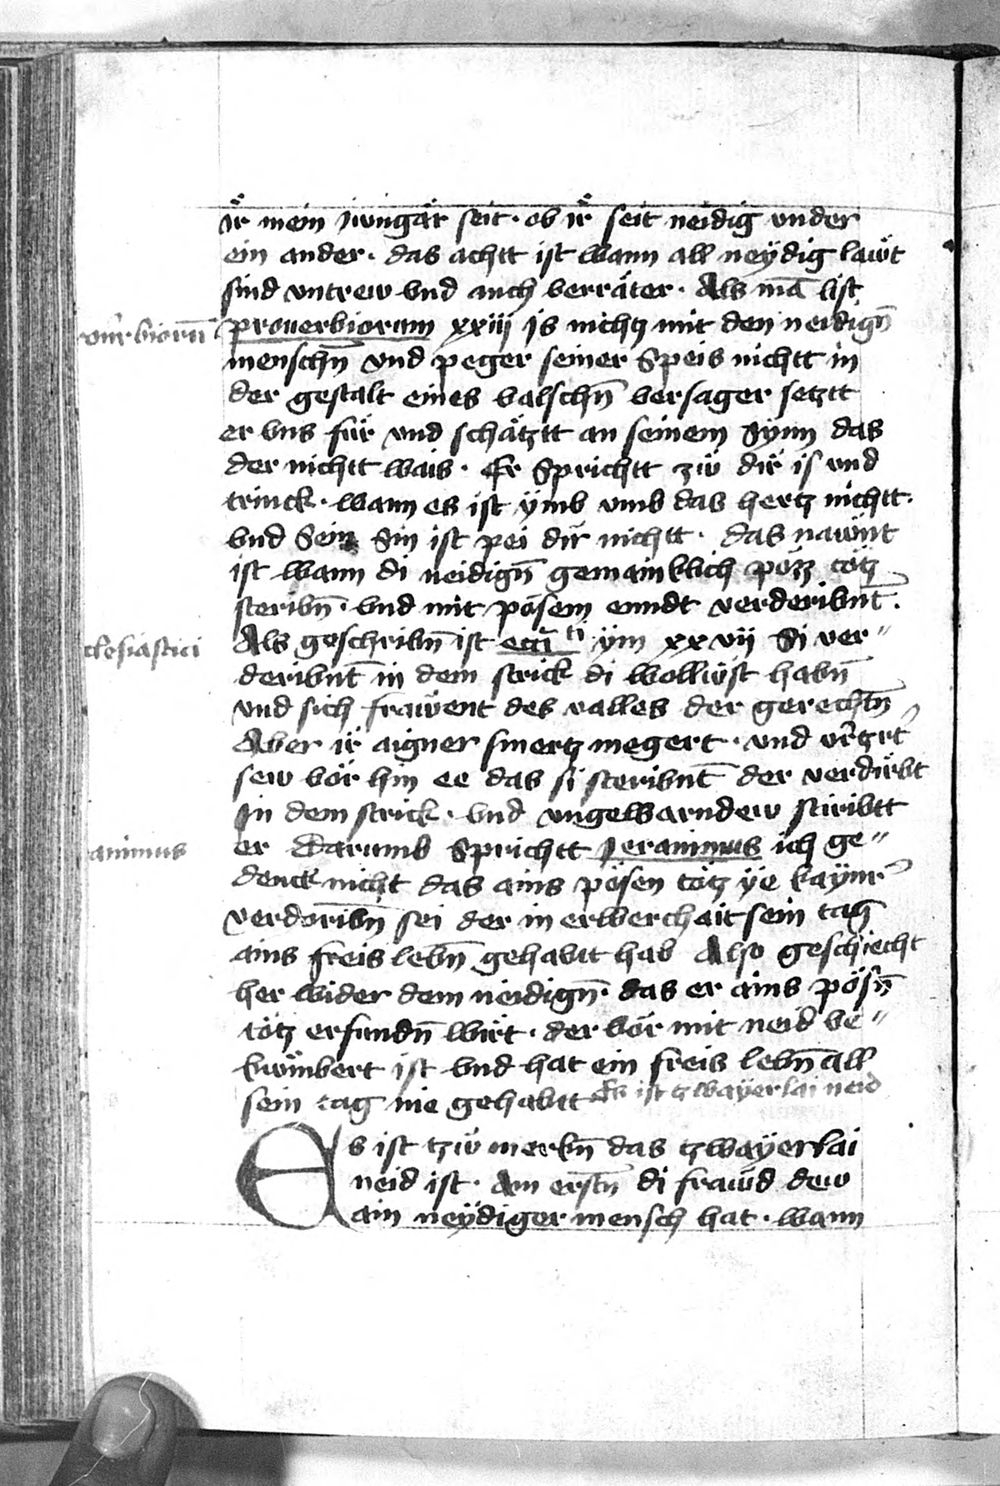 ir mein Jungar seit · ob ir seit neidig under
ein ander · das achtt ist wann all neÿdig lawt
sind untrew vnd auch verräter · Als mā list
prouerbiorum
prouerbiorum xxiij is nichtz mit den neidign̄
menschn̄ vnd peger seiner speis nichtt in
der gestalt eines valschn̄ versager setztt
er vns für vnd schätztt an seinem Synn das
der nichtt wais · Er sprichtt zw dir is vnd
trinck · wann es ist ÿmb vmb das hertz nichtt ·
vnd sein Sin ist pei dir nichtt · das nawnt
ist wann di neidign̄ gemainklich pöz tötz
steribn̄ · vnd mit pösem enndt verderibnt̄ ·
clesiastici
Als geschribn̄ ist ecciti ÿm xxvij Si ver⸗
deribnt̄ in dem strick di wollüst habn̄
vnd sich frawent des valles der gerechtn̄
Aber ir aigner smertz megert · vnd vrtzrt
sew vor hin ee das si steribnt̄ der verdirbt
In dem strick · vnd ungewarndew stiribtt
animus
er Darumb sprichtt Jeranimus ich ge⸗
denck nicht das ains pösen tötz ÿe kaynr
verdoribn̄ sei der in erberchait sein tag
ains freis lebn̄ gehabt hab Also geschiecht
her wider dem neidign̄ · das er ains pösn̄
tötz erfundn̄ wirt · der vor mit neid be⸗
kumbert ist vnd hat ein freis lebn̄ all
sein tag nie gehabt Es ist tzwaÿerlai neid
Es ist tzw merkn̄ das tzwaÿerlai
neid ist · Am erstn̄ di frawd dew
ain neÿdiger mensch hat · wann